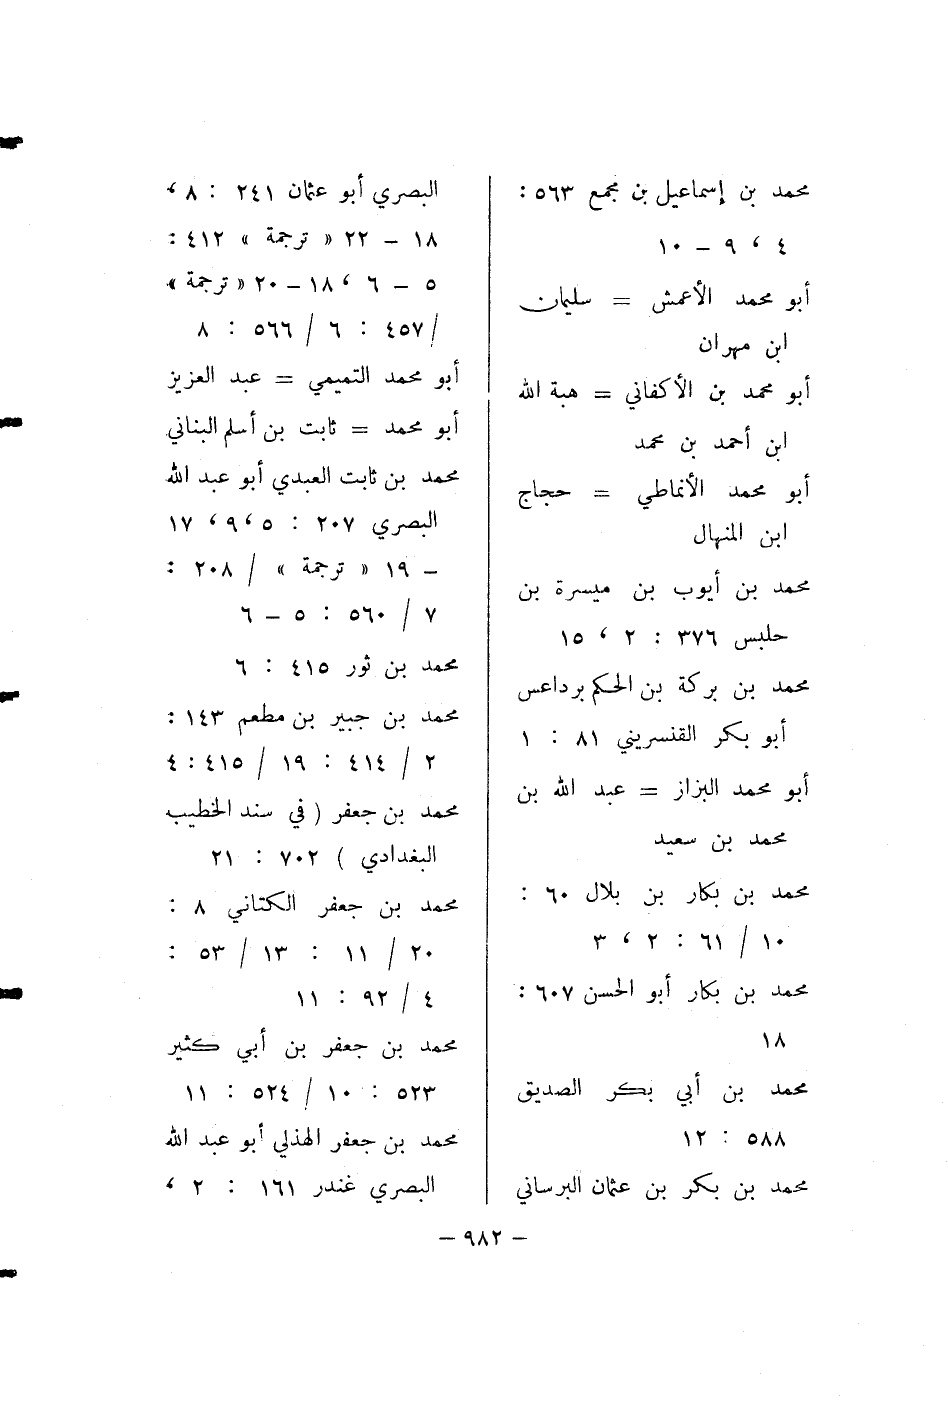 محمد بن إسماعيل بن مجمع ٥٦٣ :
٤ ، ٩ – ١٠
أبو محمد الأعمش = سليمان
ابن مهران
أبو محمد بن الأكفاني = هبة الله
ابن أحمد بن محمد
أبو محمد الأنماطي = حجاج
ابن المنهال
محمد بن أيوب بن ميسرة بن
حلبس ٣٧٦ : ٢ ، ١٥
محمد بن بركة بن الحكم برداعس
أبو بكر القنسريني ٨١ : ١
أبو محمد البزاز = عبد الله بن
محمد بن سعيد
محمد بن بكار بن بلال ٦٠ :
١٠ / ٦١ : ٢ ، ٣
محمد بن بكار أبو الحسن ٦٠٧ :
١٨
محمد بن أبي بكر الصديق
٥٨٨ : ١٢
محمد بن بكر بن عثمان البرساني
البصري أبو عثمان ٢٤١ : ٨ ،
١٨ – ٢٢ « ترجمة » ٤١٢ :
٥ – ٦ ، ١٨ – ٢٠ « ترجمة »
/ ٤٥٧ : ٦ / ٥٦٦ : ٨
أبو محمد التميمي = عبد العزيز
أبو محمد = ثابت بن أسلم البناني
محمد بن ثابت العبدي أبو عبد الله
البصري ٢٠٧ : ٥ ، ٩ ، ١٧
– ١٩ « ترجمة » / ٢٠٨ :
٧ / ٥٦٠ : ٥ – ٦
محمد بن ثور ٤١٥ : ٦
محمد بن جبير بن مطعم ١٤٣ :
٢ / ٤١٤ : ١٩ / ٤١٥ : ٤
محمد بن جعفر ( في سند الخطيب
البغدادي ) ٧٠٢ : ٢١
محمد بن جعفر الكتاني ٨ :
٢٠ / ١١ : ١٣ / ٥٣ :
٤ / ٩٢ : ١١
محمد بن جعفر بن أبي كثير
٥٢٣ : ١٠ / ٥٢٤ : ١١
محمد بن جعفر الهذلي أبو عبد الله
البصري غندر ١٦١ : ٢ ،
– ٩٨٢ –